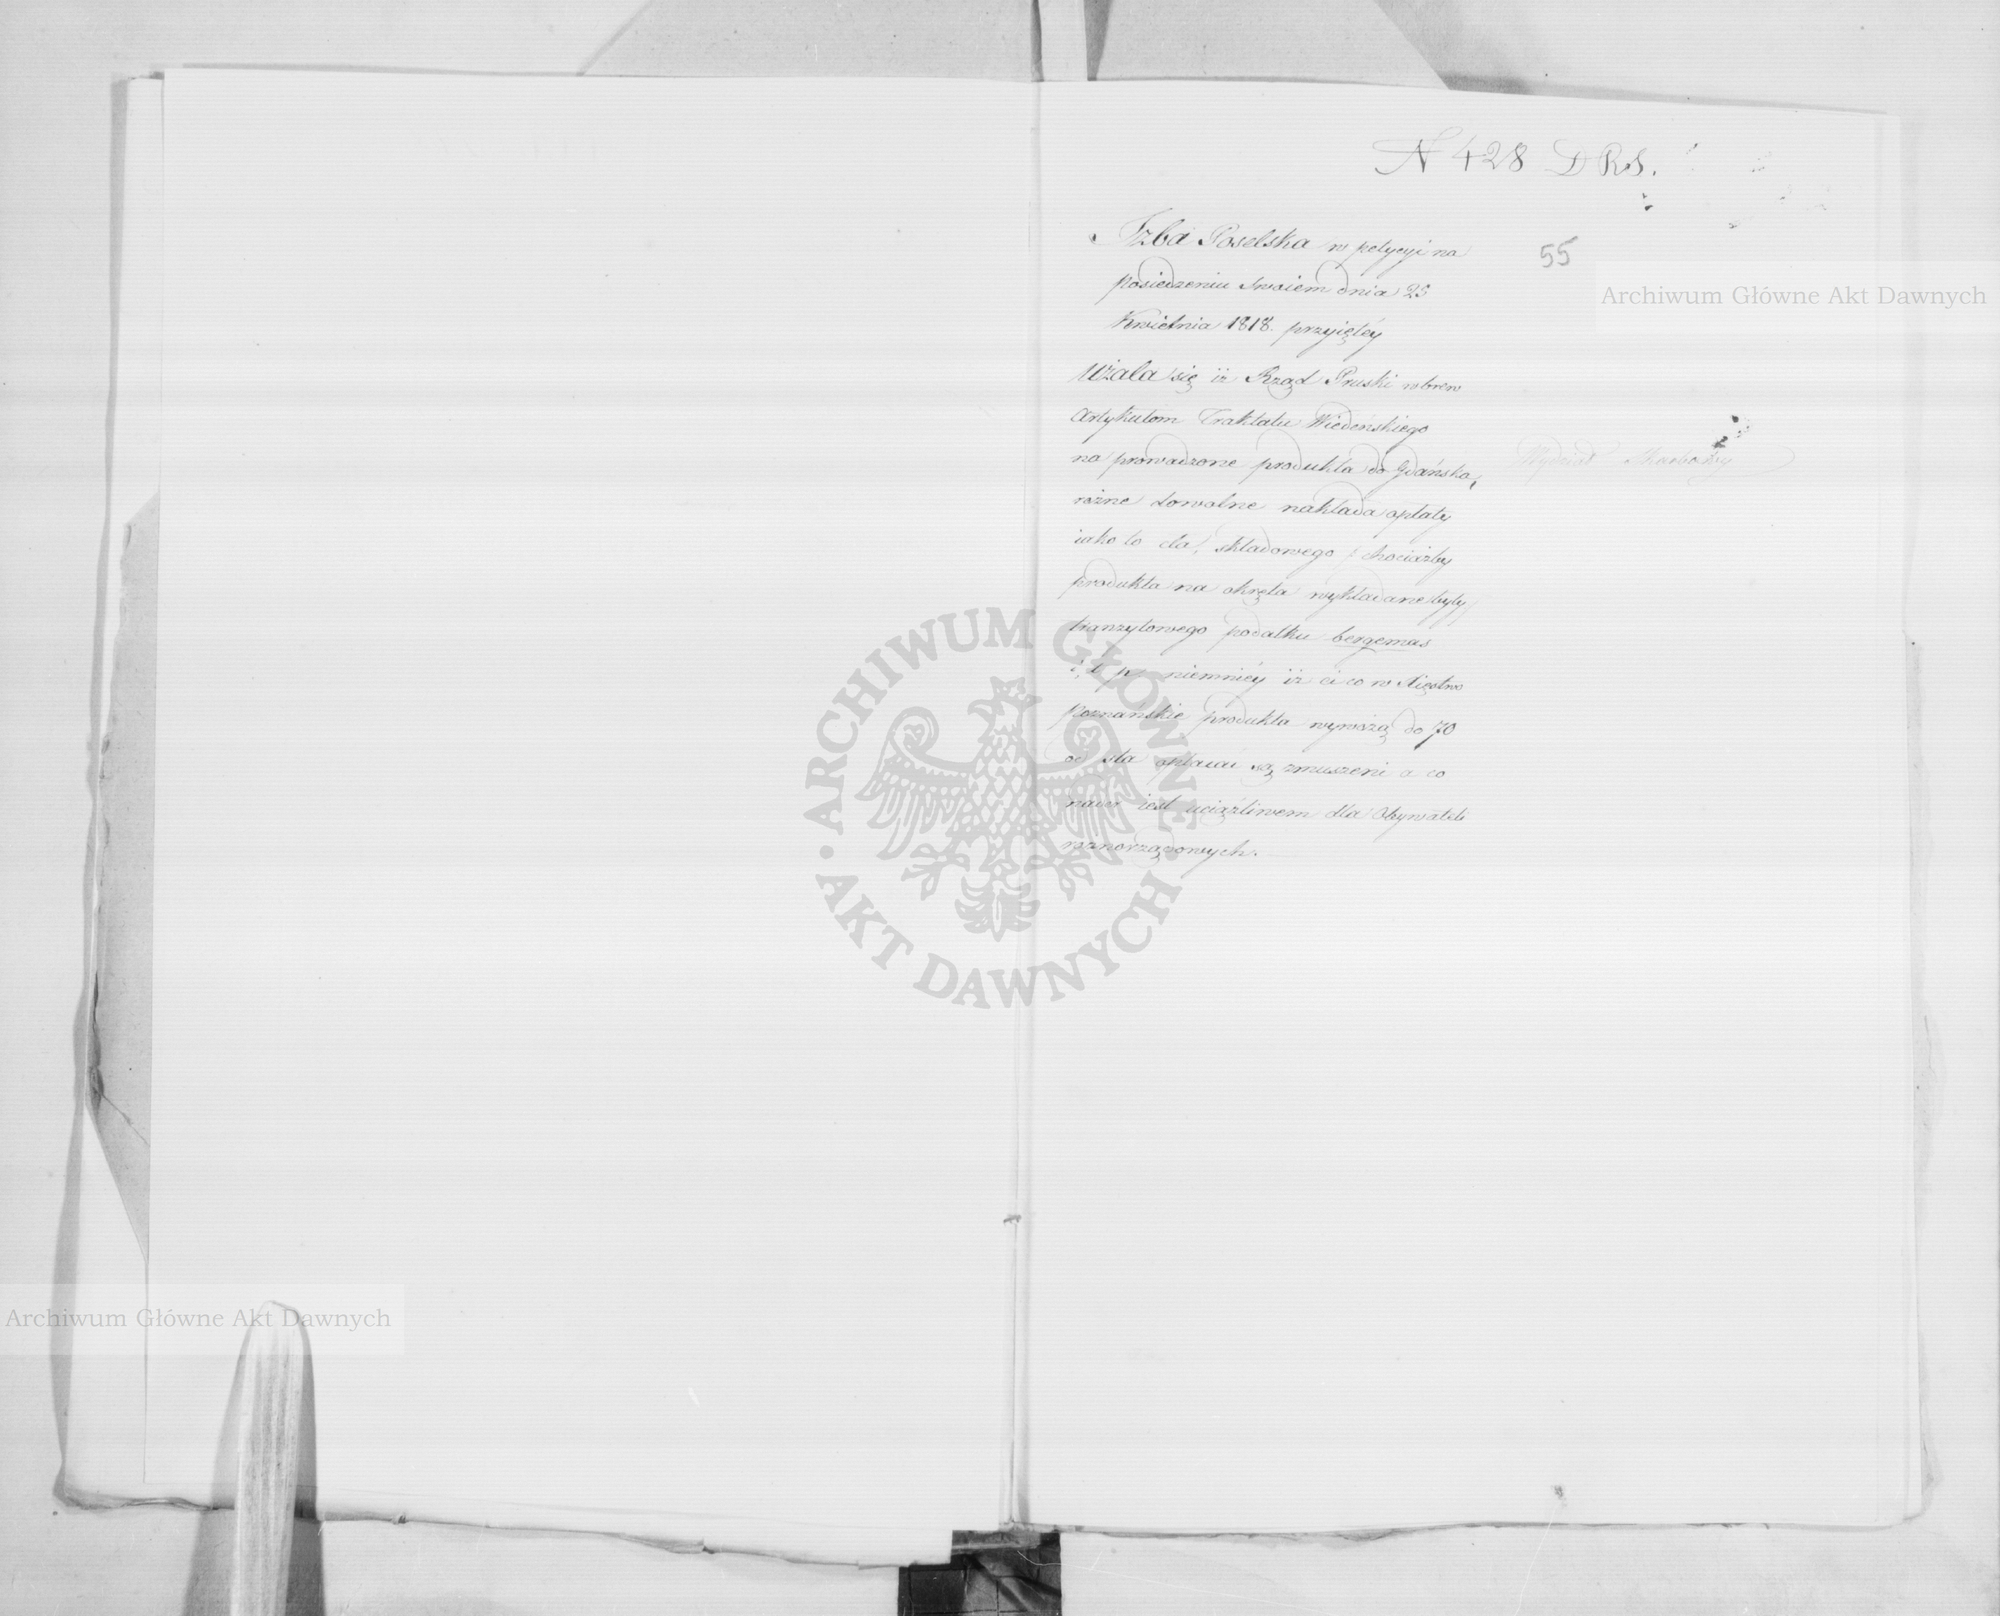 N 428 DRS.
55
Izba Poselska w petycyi na
posiedzeniu swoiem dnia 25
Kwietnia 1818. przyiętéy
użala się iż Rząd Pruski wbrew
Artykułom Traktatu Wiedeńskiego
na prowadzone produkta do Gdańska,
rożne dowolne nakłada opłaty
iako to cła, składowego / chociażby
produkta na okręta wykładane były /
tranzytowego podatku bergemas
i, t p, niemniéy iż ci co w Xięstwo
Poznańskie produkta wywożą do 70
od sta opłacać są zmuszeni a co
nader iest uciążliwem dla Obywateli
rożnorządowych.
Wydział Skarbowy
Archiwum Główne Akt Dawnych
Archiwum Główne Akt Dawnych
ARCHIWUM GŁÓWNE
AKT DAWNYCH